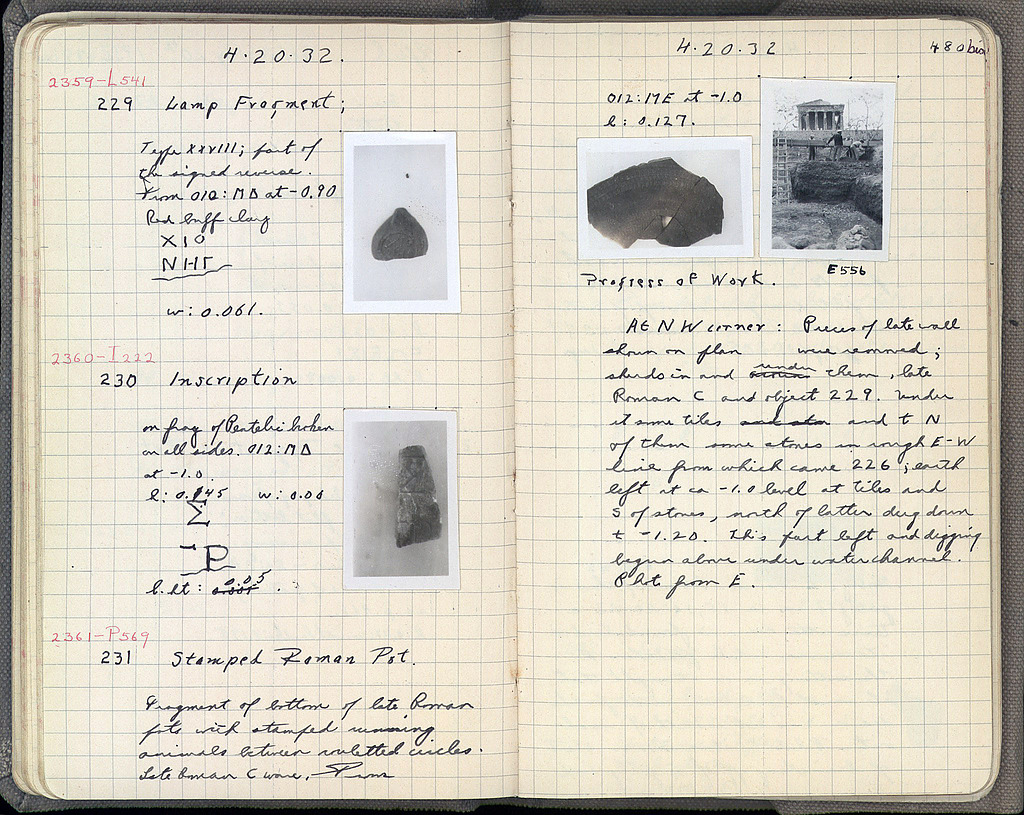 4.20.32.
2359-L541
229 Lamp Fragment;
Type XXVIII; part of
the signed reverse.
From 012:ΜΔ at -0.90
Red buff clay
ΧΙΟ
ΝΗΓ
w: 0.061.
2360-I222
230 Inscription
on frag of Pentelic broken
on all sides. 012:ΜΔ
at -1.0.
l: 0.145 w: 0.00
Σ
Ρ
l.ht: 0.05.
2361-P569
231 Stamped Roman Pot.
Fragment of bottom of late Roman
pots with stamped running
animals between rouletted circles.
Late Roman C ware. From
4.20.32
480 bis
012:ME at -1.0
l: 0.127.
E556
Progress of Work.
At NW corner: Pieces of late wall
shown on plan were removed;
sherds in and under them, late
Roman C and object 229. Under
it some tiles and t N
of them some stones in rough E-W
line from which came 226; earth
left at ca -1.0 level at tiles and
S of stones, north of latter dug down
t -1.20. This part left and digging
begun above under water channel.
Phot from E.